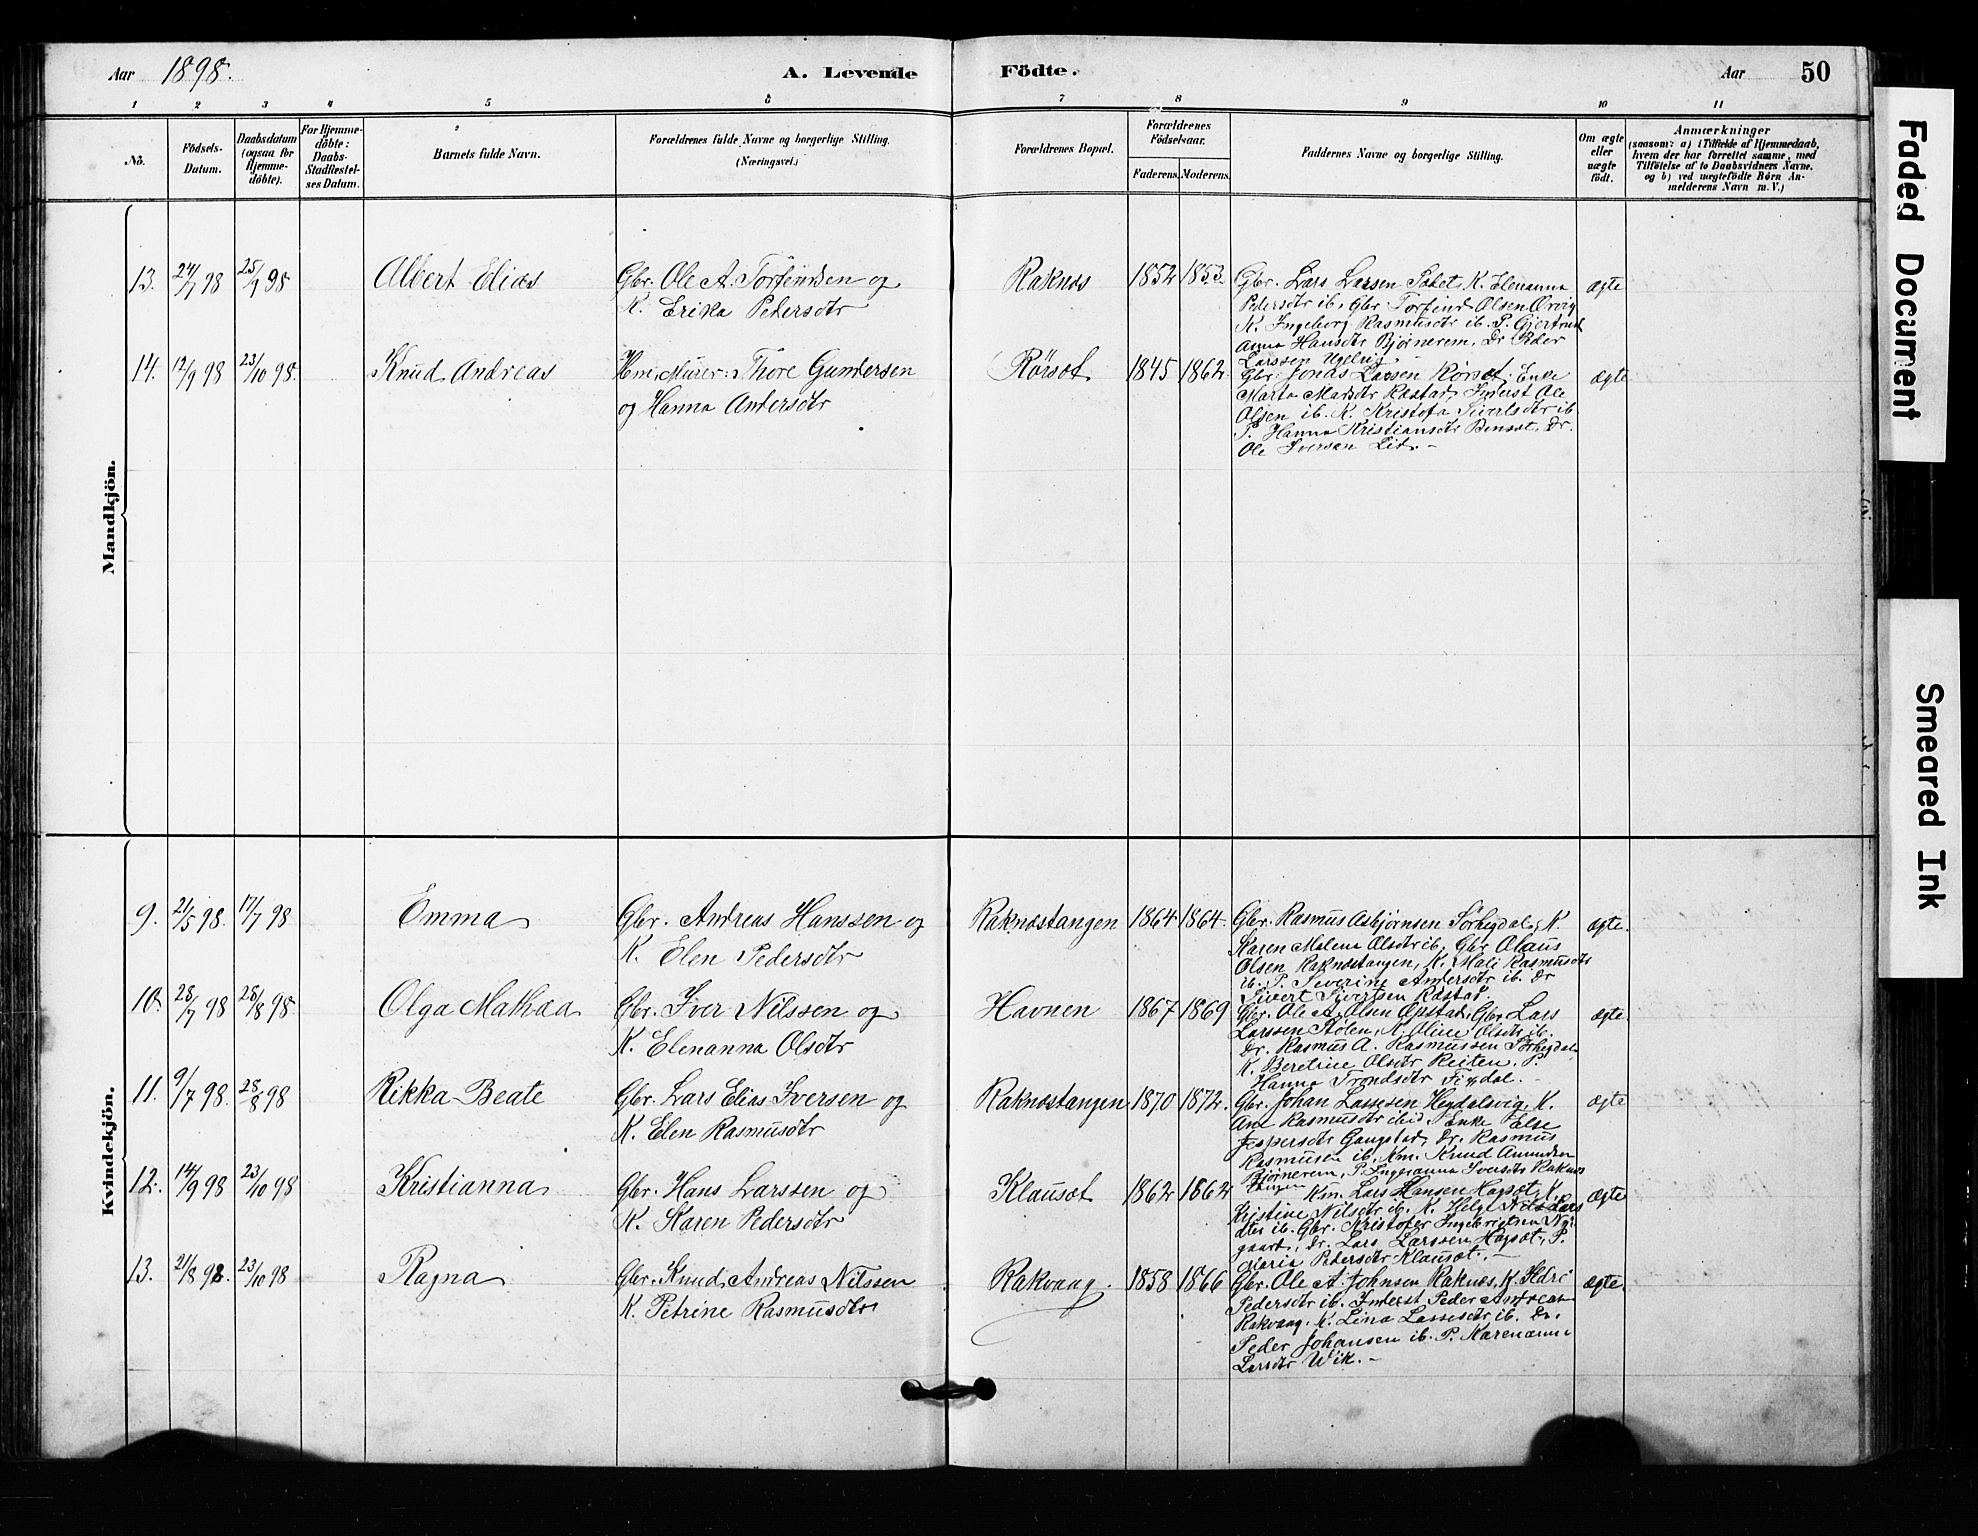 Aar 1898. A. Levende Födte. Aar 50
1 2 3 4 5 6 7 8 9 10 11
No.
Födsels-
Datum.
Daabsdatum
(ogsaa for
Hjemme-
döbte).
For Hjemme-
döbte:
Daabs-
Stadfæstel-
ses Datum.
Barnets fulde Navn.
Forældrenes fulde Navne og borgerlige Stilling.
(Næringsvei.)
Forældrenes Bopæl.
Forældrenes
Födselsaar.
Faderens. Moderens.
Faddernes Navne og borgerlige Stilling.
Om ægte
eller
uægte
födt.
Anmærkninger
(saasom: a) i Tilfælde af Hjemmedaab,
hvem der har forrettet samme, med
Tilföielse af to Daabsvidners Navne.
og b) ved uægtefödte Børn An-
melderens Navn m. V.)
Mandkjön.
13. 24/7 98 25/9 98 Albert Elias
Gbr. Ole A. Torfindsen og
K. Erika Pedersdtr
Raknæs 1852 1853.
Gbr. Lars Larsen Sætet, K. Elenanna
Pedersdtr ib, Gbr Torfind Olsen Ørvig
K. Ingeborg Rasmusdtr ib. P. Gjertrud
Anna Hansdtr Bjørnerem, Dr Peder
Larssen Ugelvig.
ægte
14. 12/9 98 23/10 98. Knud Andreas
Hm. Murer: Thore Gundersen
og Hanna Andersdtr
Rørsæt 1845 1862.
Gbr. Jonas Larsen Rørset, Enke
Marta Madsdtr Rastad, Inderst Ole
Olsen ib. K. Kristofa Sivertsdtr ib
P. Hanna Kristiansdtr Bensæt, Dr.
Ole Iversen Lid. -
ægte
Kvindekjön.
9. 21/5 98. 17/7 98 Emma
Gbr. Andreas Hanssen og
K. Elen Pedersdtr
Raknæstangen 1864 1864.
Gbr. Rasmus Asbjørnsen Sørheydal, K.
Karen Malena Olsdtr ib, Gbr Olaus
Olsen Raknæstangen, K. Mali Rasmusdtr
ib. P. Severine Andersdtr ib. Dr
Sivert Sivertsen Rastad.
ægte.
10. 28/7 98 28/8 98. Olga Mathea
Gbr. Iver Nilssen og
K. Elenanna Olsdtr
Havnen 1867 1869
Gbr. Ole A. Olsen Opstad, Gbr. Lars
Larssen Stølen, K. Oline Olsdtr ib.
Dr. Rasmus A. Rasmussen Sørheydal
K. Beretine Olsdtr Reiten. P.
Hanna Trondsdtr Fixdal. -
ægte.
11. 9/7 98. 28/8 98 Rikka Beate
Gbr. Lars Elias Iversen og
K. Elen Rasmusdtr
Raknæstangen 1870 1872.
Gbr. Johan Lassesen Heydalsvig, K.
Ane Rasmusdtr ibid. Enke Else
Jespersdtr Gangstad, Dr. Rasmus
Rasmusen ib, Km. Knud Amundsen
Bjørnerem, P. Ingeranna Iversdtr Raknæs
tangen
ægte
12. 14/9 98 23/10 98 Kristianna
Gbr. Hans Larssen og
K. Karen Pedersdtr
Klausæt 1862 1862
Km. Lars Hansen Hagsæt, K.
Kristine Nilsdtr ib. K. Helge Nils Lars
dtr ib. Gbr. Kristofer Ingebrigtsen Ny-
gaard, Dr. Lars Larssen Hagsæt, P.
Maria Pedersdtr Klausæt. -
ægte
13. 21/8 98. 23/10 98 Ragna
Gbr. Knud Andreas Nilssen
K. Petrine Rasmusdtr
Rakvaag. 1858 1866
Gbr. Ole A. Johnsen Raknæs, K. Ildri
Pedersdtr ib. Inderst Peder Andreas
Rakvaag. K. Lina Lassesdtr ib. Dr.
Peder Johansen ib. P. Karenanne
Larsdtr Wik. -
ægte.
Faded Document
Smeared Ink